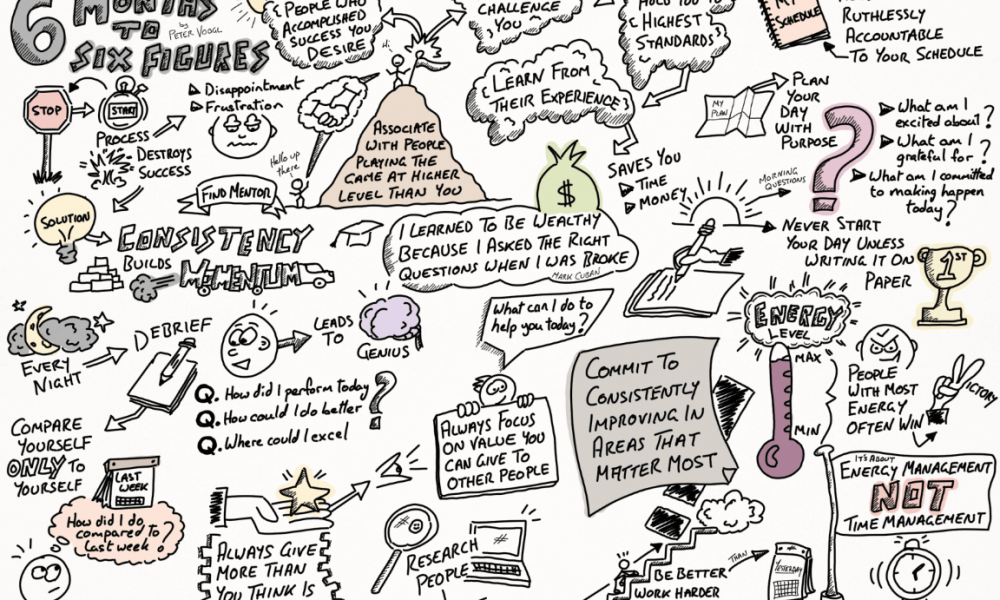 6 MONTHS
TO
SIX FIGURES
by
PETER VOOGD
PEOPLE WHO
ACCOMPLISHED
SUCCESS YOU
DESIRE
CHALLENGE
YOU
HOLD YOU TO
HIGHEST
STANDARDS
MY
SCHEDULE
RUTHLESSLY
ACCOUNTABLE
TO YOUR SCHEDULE
STOP
START
PROCESS
DESTROYS
SUCCESS
Disappointment
Frustration
Hi
Hello up
there
FIND MENTOR
ASSOCIATE
WITH PEOPLE
PLAYING THE
GAME AT HIGHER
LEVEL THAN YOU
LEARN FROM
THEIR EXPERIENCE
$
SAVES YOU
TIME
MONEY
MY
PLAN
PLAN
YOUR
DAY
WITH
PURPOSE
?
MORNING
QUESTIONS
What am I
excited about?
What am I
grateful for?
What am I committed
to making happen
today?
SOLUTION
CONSISTENCY
BUILDS
MOMENTUM
I LEARNED TO BE WEALTHY
BECAUSE I ASKED THE RIGHT
QUESTIONS WHEN I WAS BROKE
MARK CUBAN
NEVER START
YOUR DAY UNLESS
WRITING IT ON
PAPER
1ST
EVERY
NIGHT
DEBRIEF
LEADS
TO
GENIUS
Q. How did I perform today
Q. How could I do better
Q. Where could I excel
?
COMPARE
YOURSELF
ONLY TO
YOURSELF
LAST
WEEK
How did I do
compared to
last week?
What can I do to
help you today?
ALWAYS FOCUS
ON VALUE YOU
CAN GIVE TO
OTHER PEOPLE
COMMIT TO
CONSISTENTLY
IMPROVING IN
AREAS THAT
MATTER MOST
ENERGY
LEVEL
MAX
MIN
PEOPLE
WITH MOST
ENERGY
OFTEN WIN
VICTORY
IT'S ABOUT
ENERGY MANAGEMENT
NOT
TIME MANAGEMENT
ALWAYS GIVE
MORE THAN
YOU THINK IS
RESEARCH
PEOPLE
BE BETTER
WORK HARDER
THAN
YESTERDAY